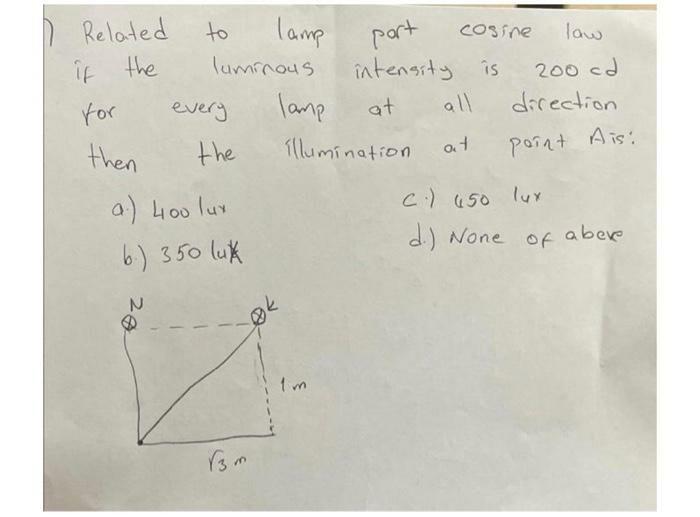 ) Related to lamp part cosine law
if the luminous intensity is 200 cd
for every lamp at all direction
then the illumination at point A is:
a.) 400 lux
b.) 350 lux
c.) 450 lux
d.) None of above
N
K
1 m
√3 m